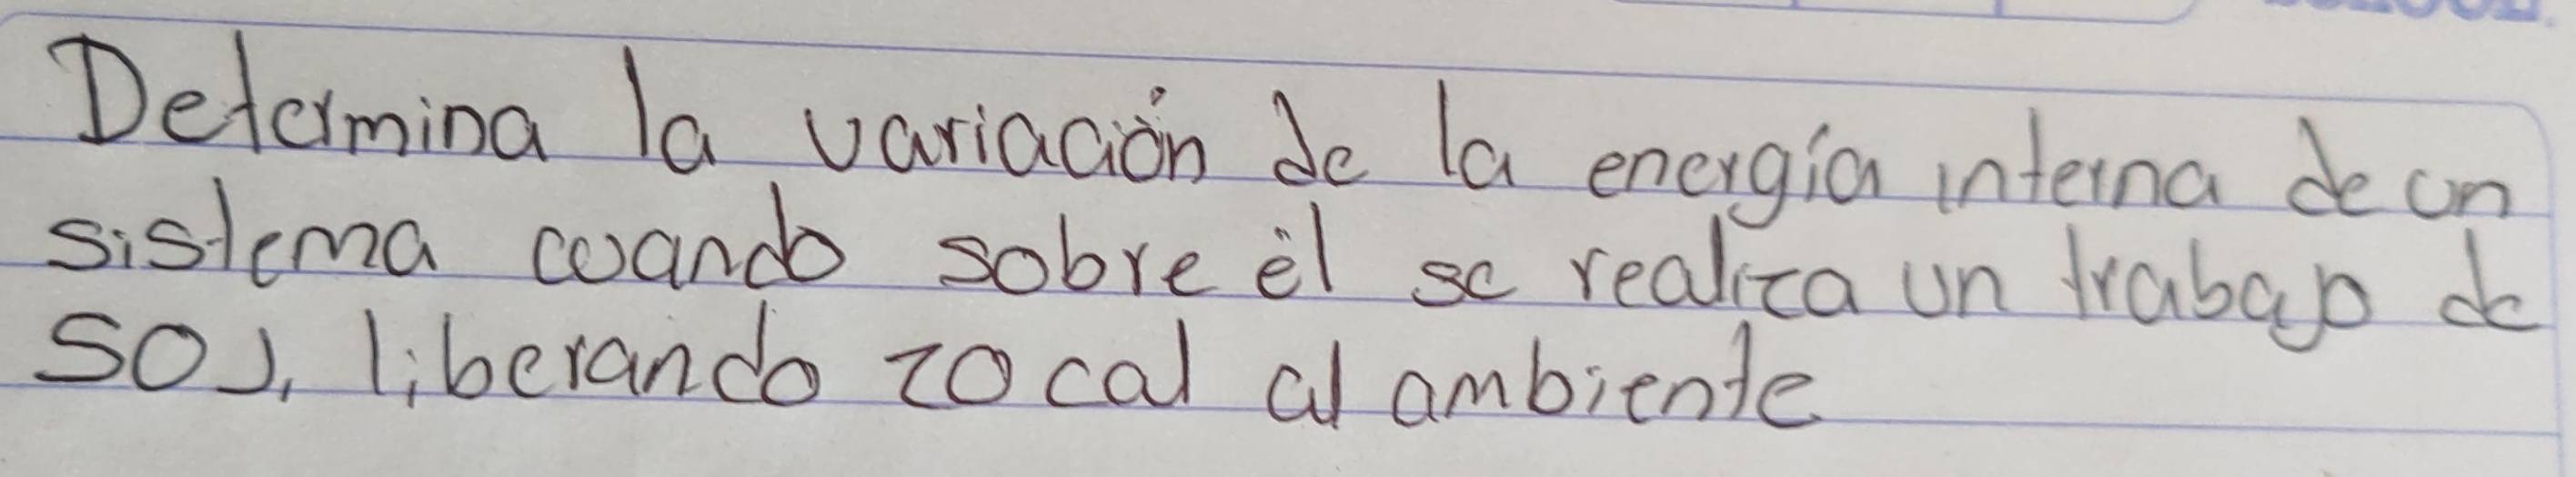 Determina la variación de la energía interna de un
sistema cuando sobre él se realiza un trabajo de
50J, liberando 20 cal al ambiente